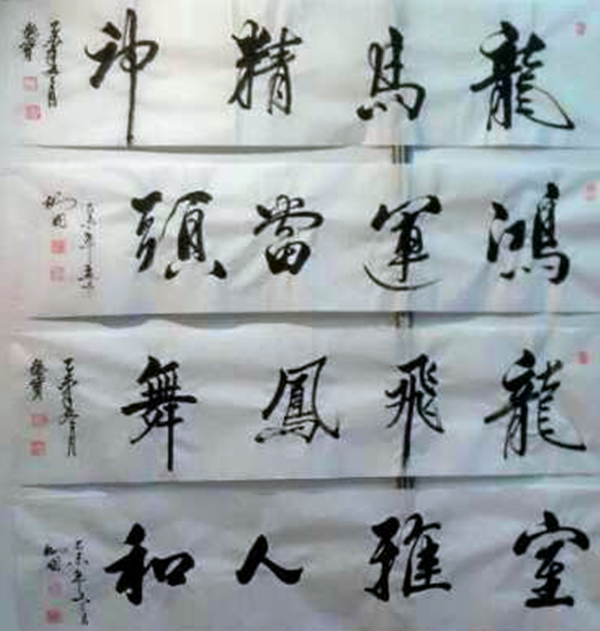 龍馬精神
鴻運當頭
龍飛鳳舞
室雅人和